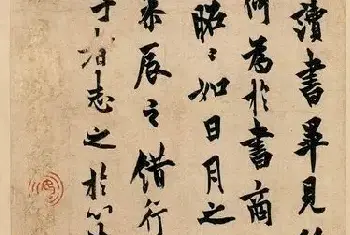 讀書畢見
何為於書商
昭〻如日月之
參辰之錯行
子者志之於心